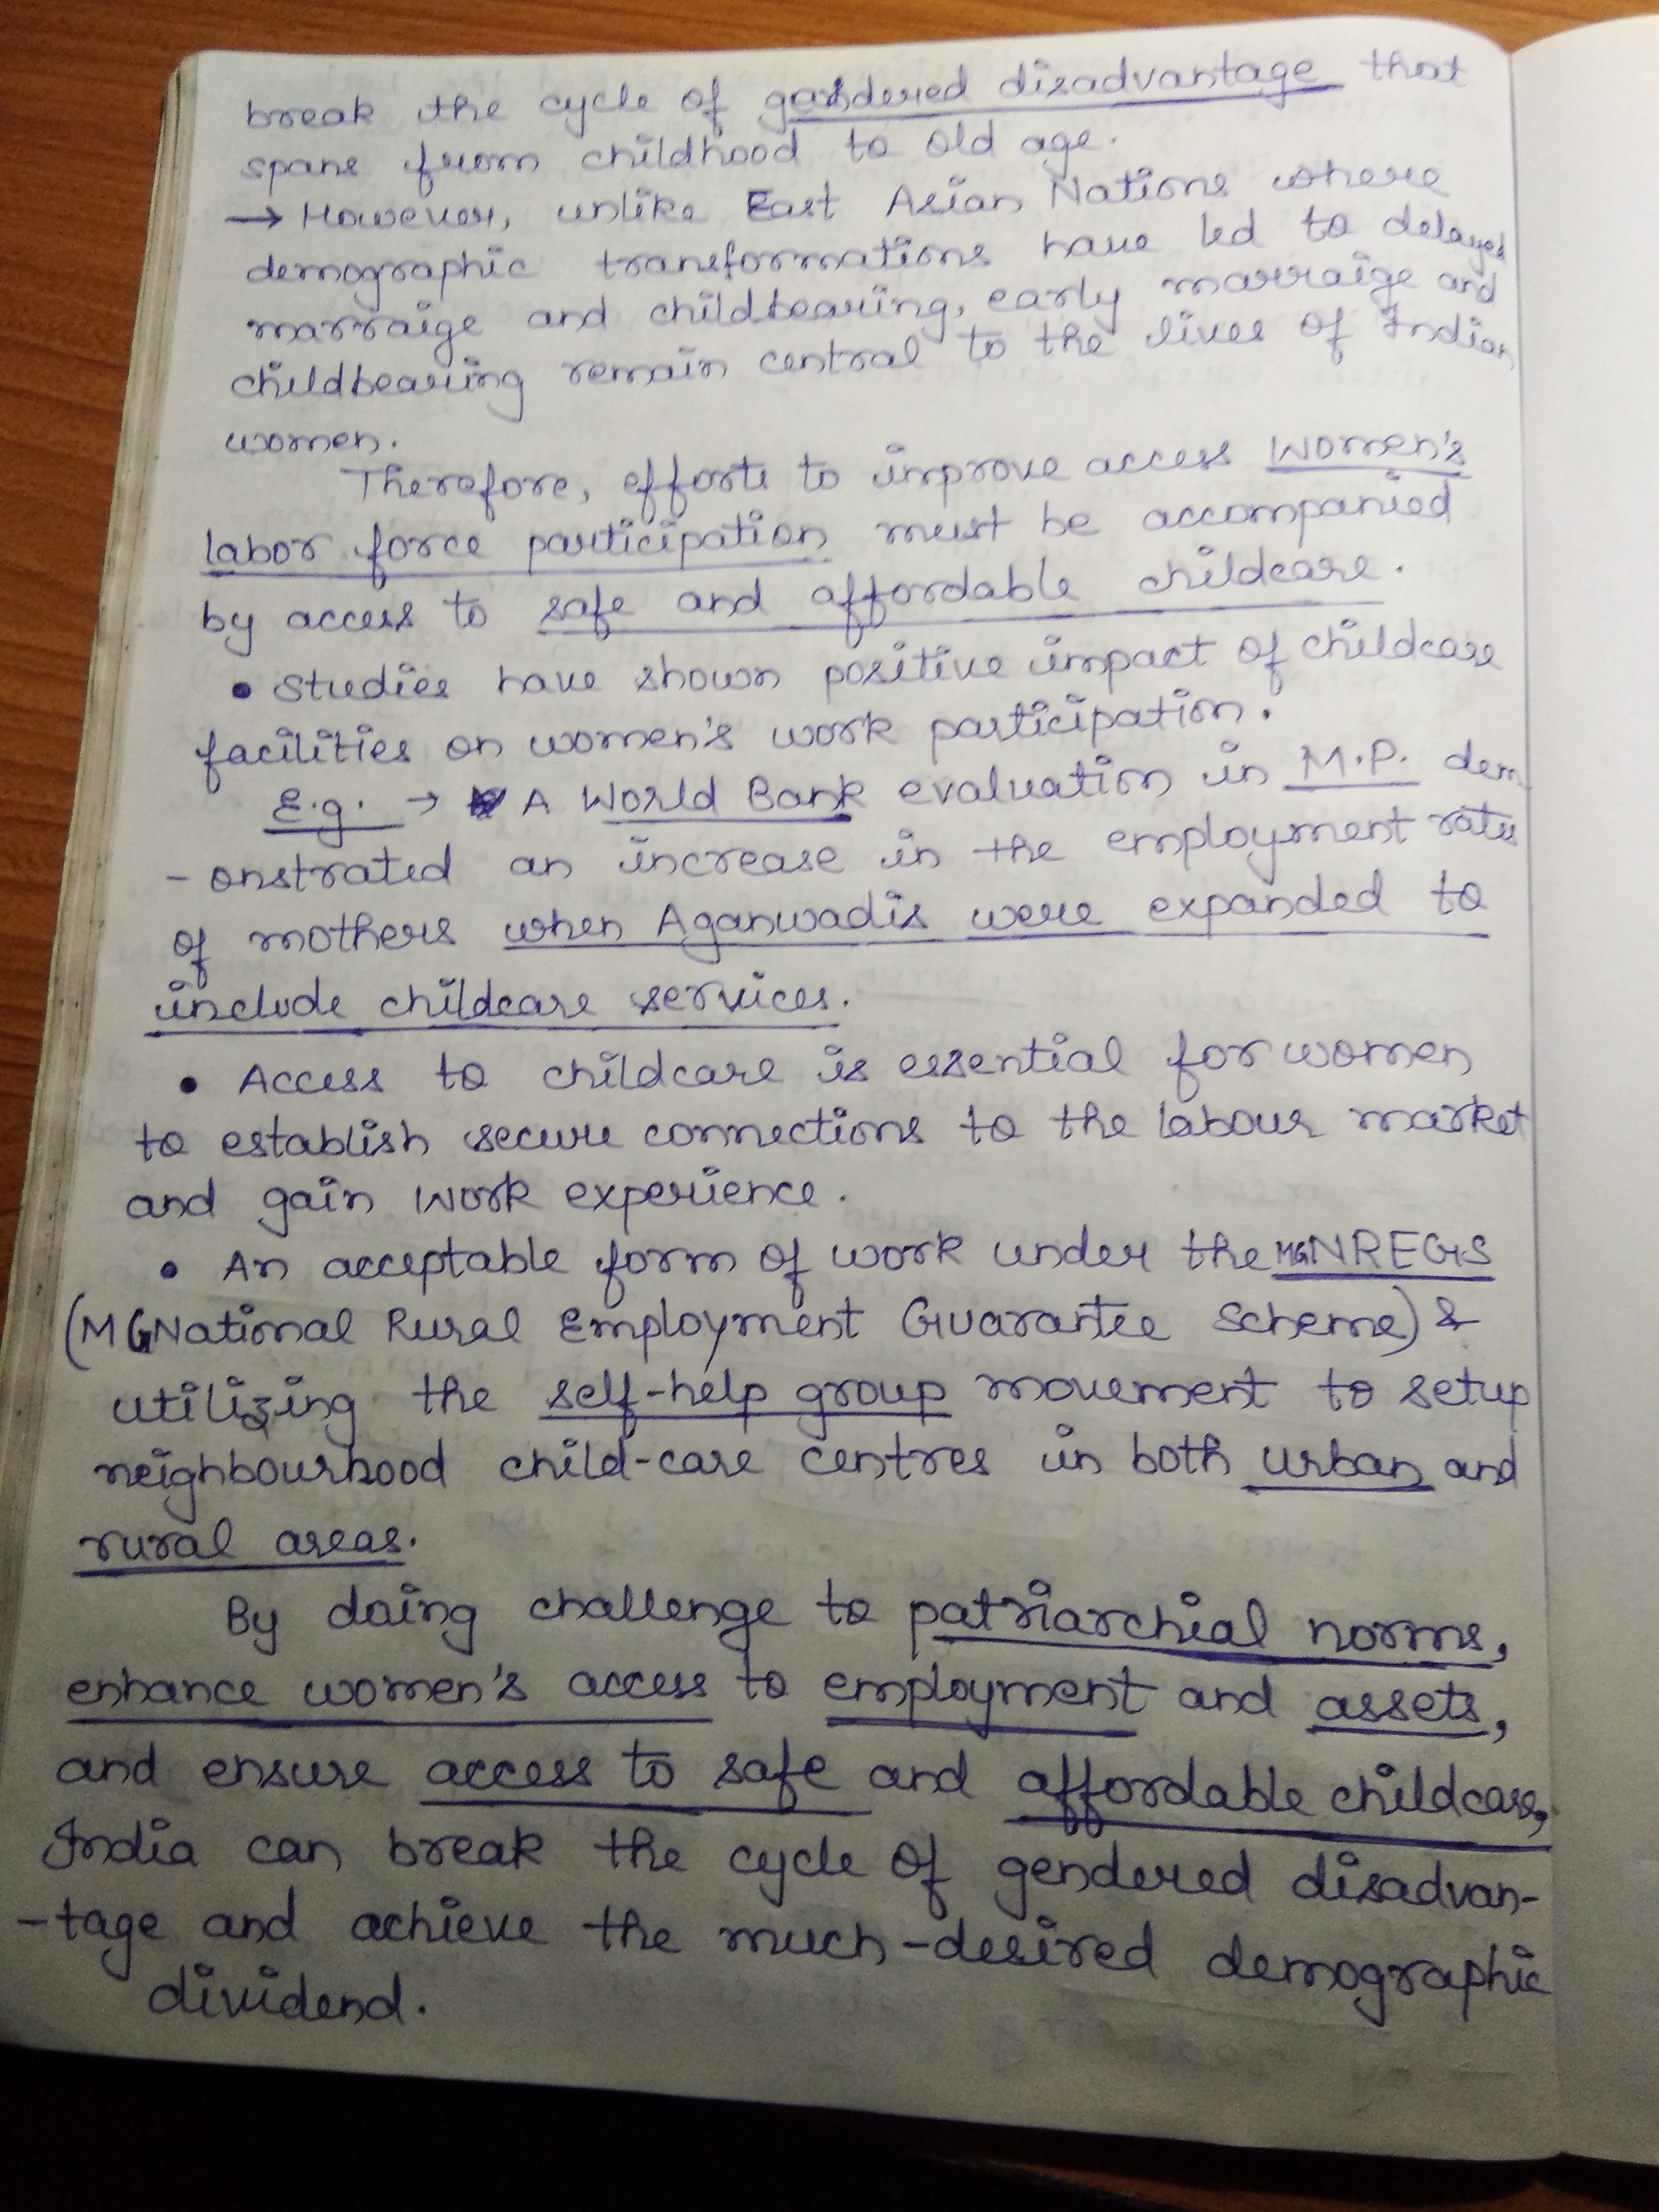 break the cycle of gendered disadvantage that
spans from childhood to old age.
→ However, unlike East Asian Nations where
demographic transformations have led to delayed
marraige and childbearing, early marraige and
childbearing remain central to the lives of Indian
women.
Therefore, efforts to improve access women's
labor force participation must be accompanied
by access to safe and affordable childcare.
• Studies have shown positive impact of childcare
facilities on women's work participation.
E.g. → A World Bank evaluation in M.P. dem
- onstrated an increase in the employment rates
of mothers when Aganwadis were expanded to
include childcare services.
• Access to childcare is essential for women
to establish secure connections to the labour market
and gain work experience.
• An acceptable form of work under the MGNREGS
(MGNational Rural Employment Guarantee Scheme) &
utilizing the self-help group movement to setup
neighbourhood child-care centres in both urban and
rural areas.
By doing challenge to patriarchial norms,
enhance women's access to employment and assets,
and ensure access to safe and affordable childcare,
India can break the cycle of gendered disadvan-
-tage and achieve the much-desired demographic
dividend.